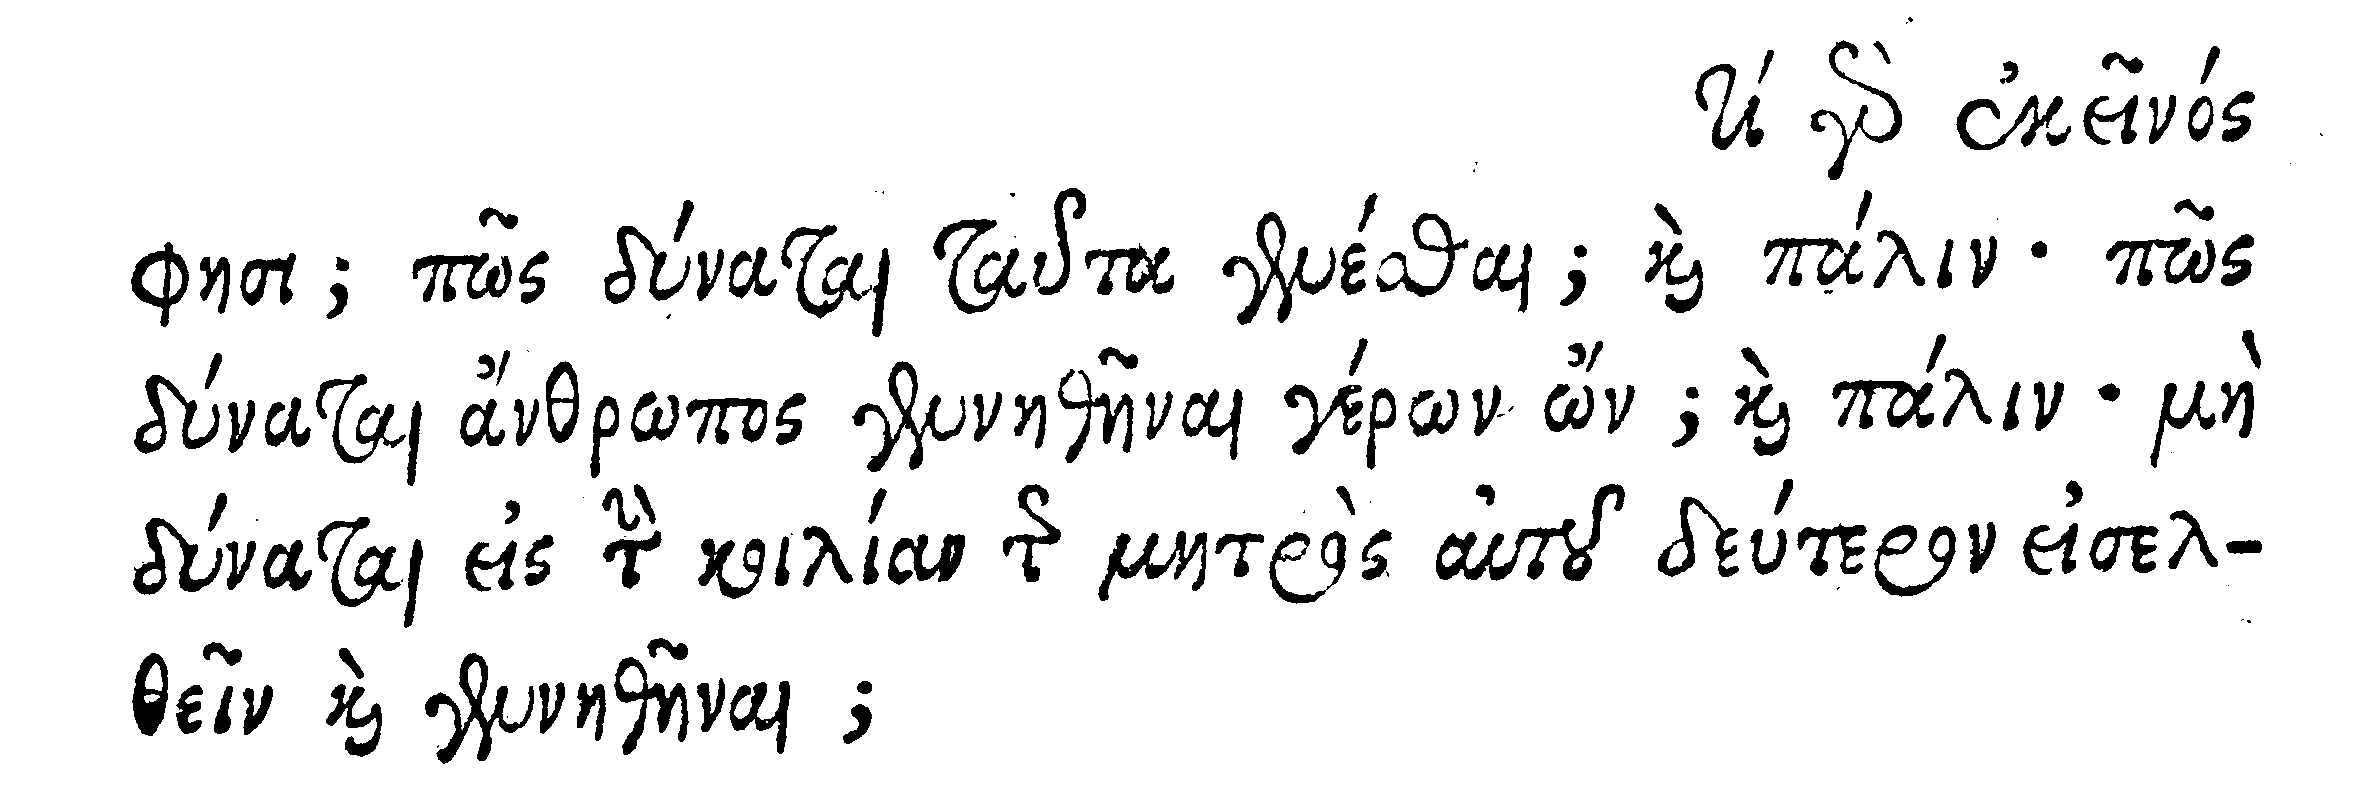 τί γὰρ ἐκεῖνός
φησι; πῶς δύναται ταῦτα γενέσθαι; καὶ πάλιν· πῶς
δύναται ἄνθρωπος γεννηθῆναι γέρων ὤν; καὶ πάλιν· μὴ
δύναται εἰς τὴν κοιλίαν τῆς μητρὸς αὐτοῦ δεύτερον εἰσελ-
θεῖν καὶ γεννηθῆναι;